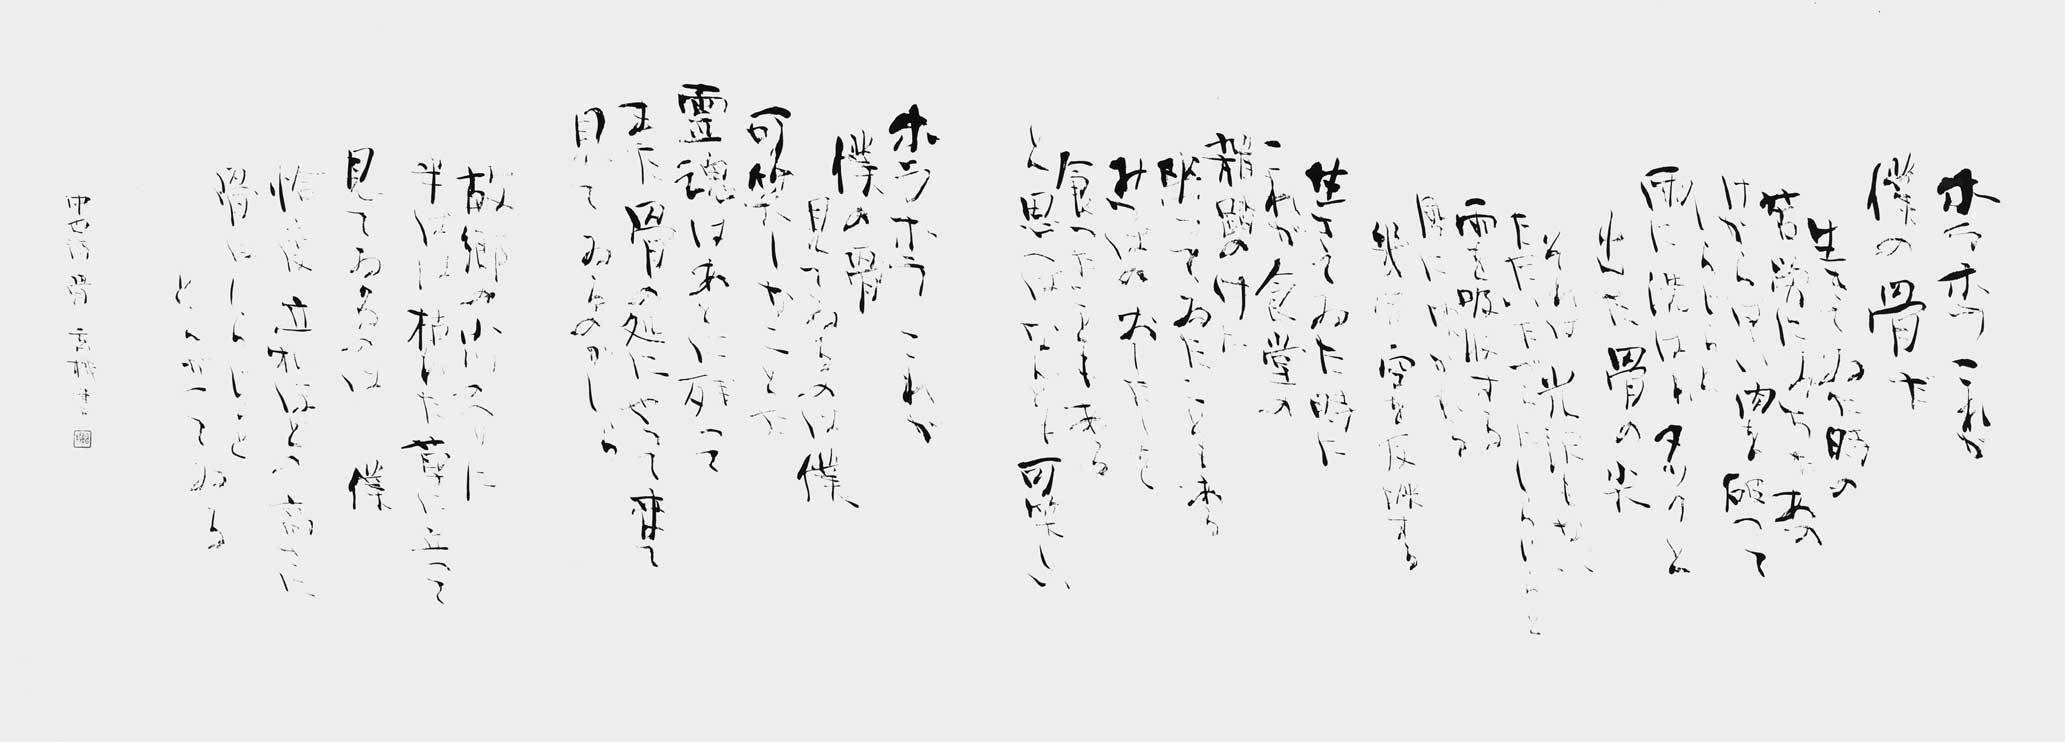 ホラホラ これが
僕の骨だ
生きてゐた時の
苦労にみちたあの
けがらはしい肉を破つて
しらじらと
雨に洗はれ ヌックと
出た 骨の尖
それは光沢もない
ただいたづらにしらじらと
雨を吸収する
風に吹かれる
幾分空を反映する
生きてゐた時に
これが食堂の
雑踏の中に
坐つてゐたこともある
みつばのおしたしを
食つたこともある
と思へばなんとも可笑しい
ホラホラ これが
僕の骨
見てゐるのは僕
可笑しなことだ
霊魂はあとに残つて
また骨の処にやつて来て
見てゐるのかしら
故郷の小川のへりに
半ばは枯れた草に立つて
見てゐるのは 僕
恰度立札ほどの高さに
骨はしらじらと
とんがつてゐる
中也詩 骨 書